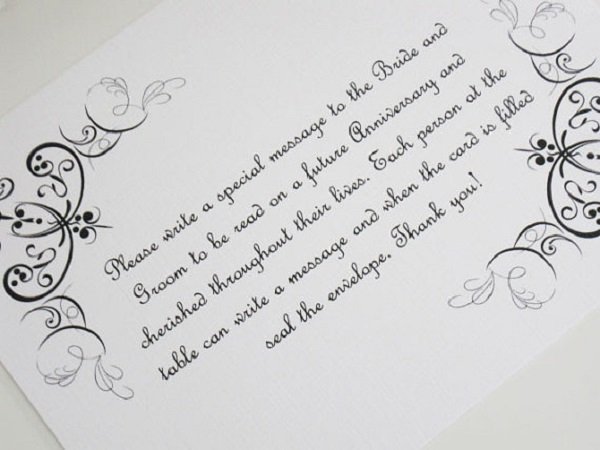 Please write a special message to the Bride and
Groom to be read on a future Anniversary and
cherished throughout their lives. Each person at the
table can write a message and when the card is filled
seal the envelope. Thank you!